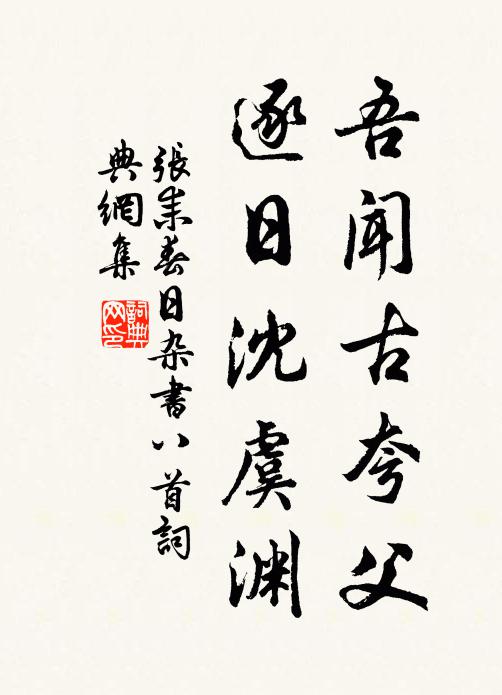 吾闻古夸父
逐日沈虞渊
張耒春日杂書八首詞
典網集
詞典网印